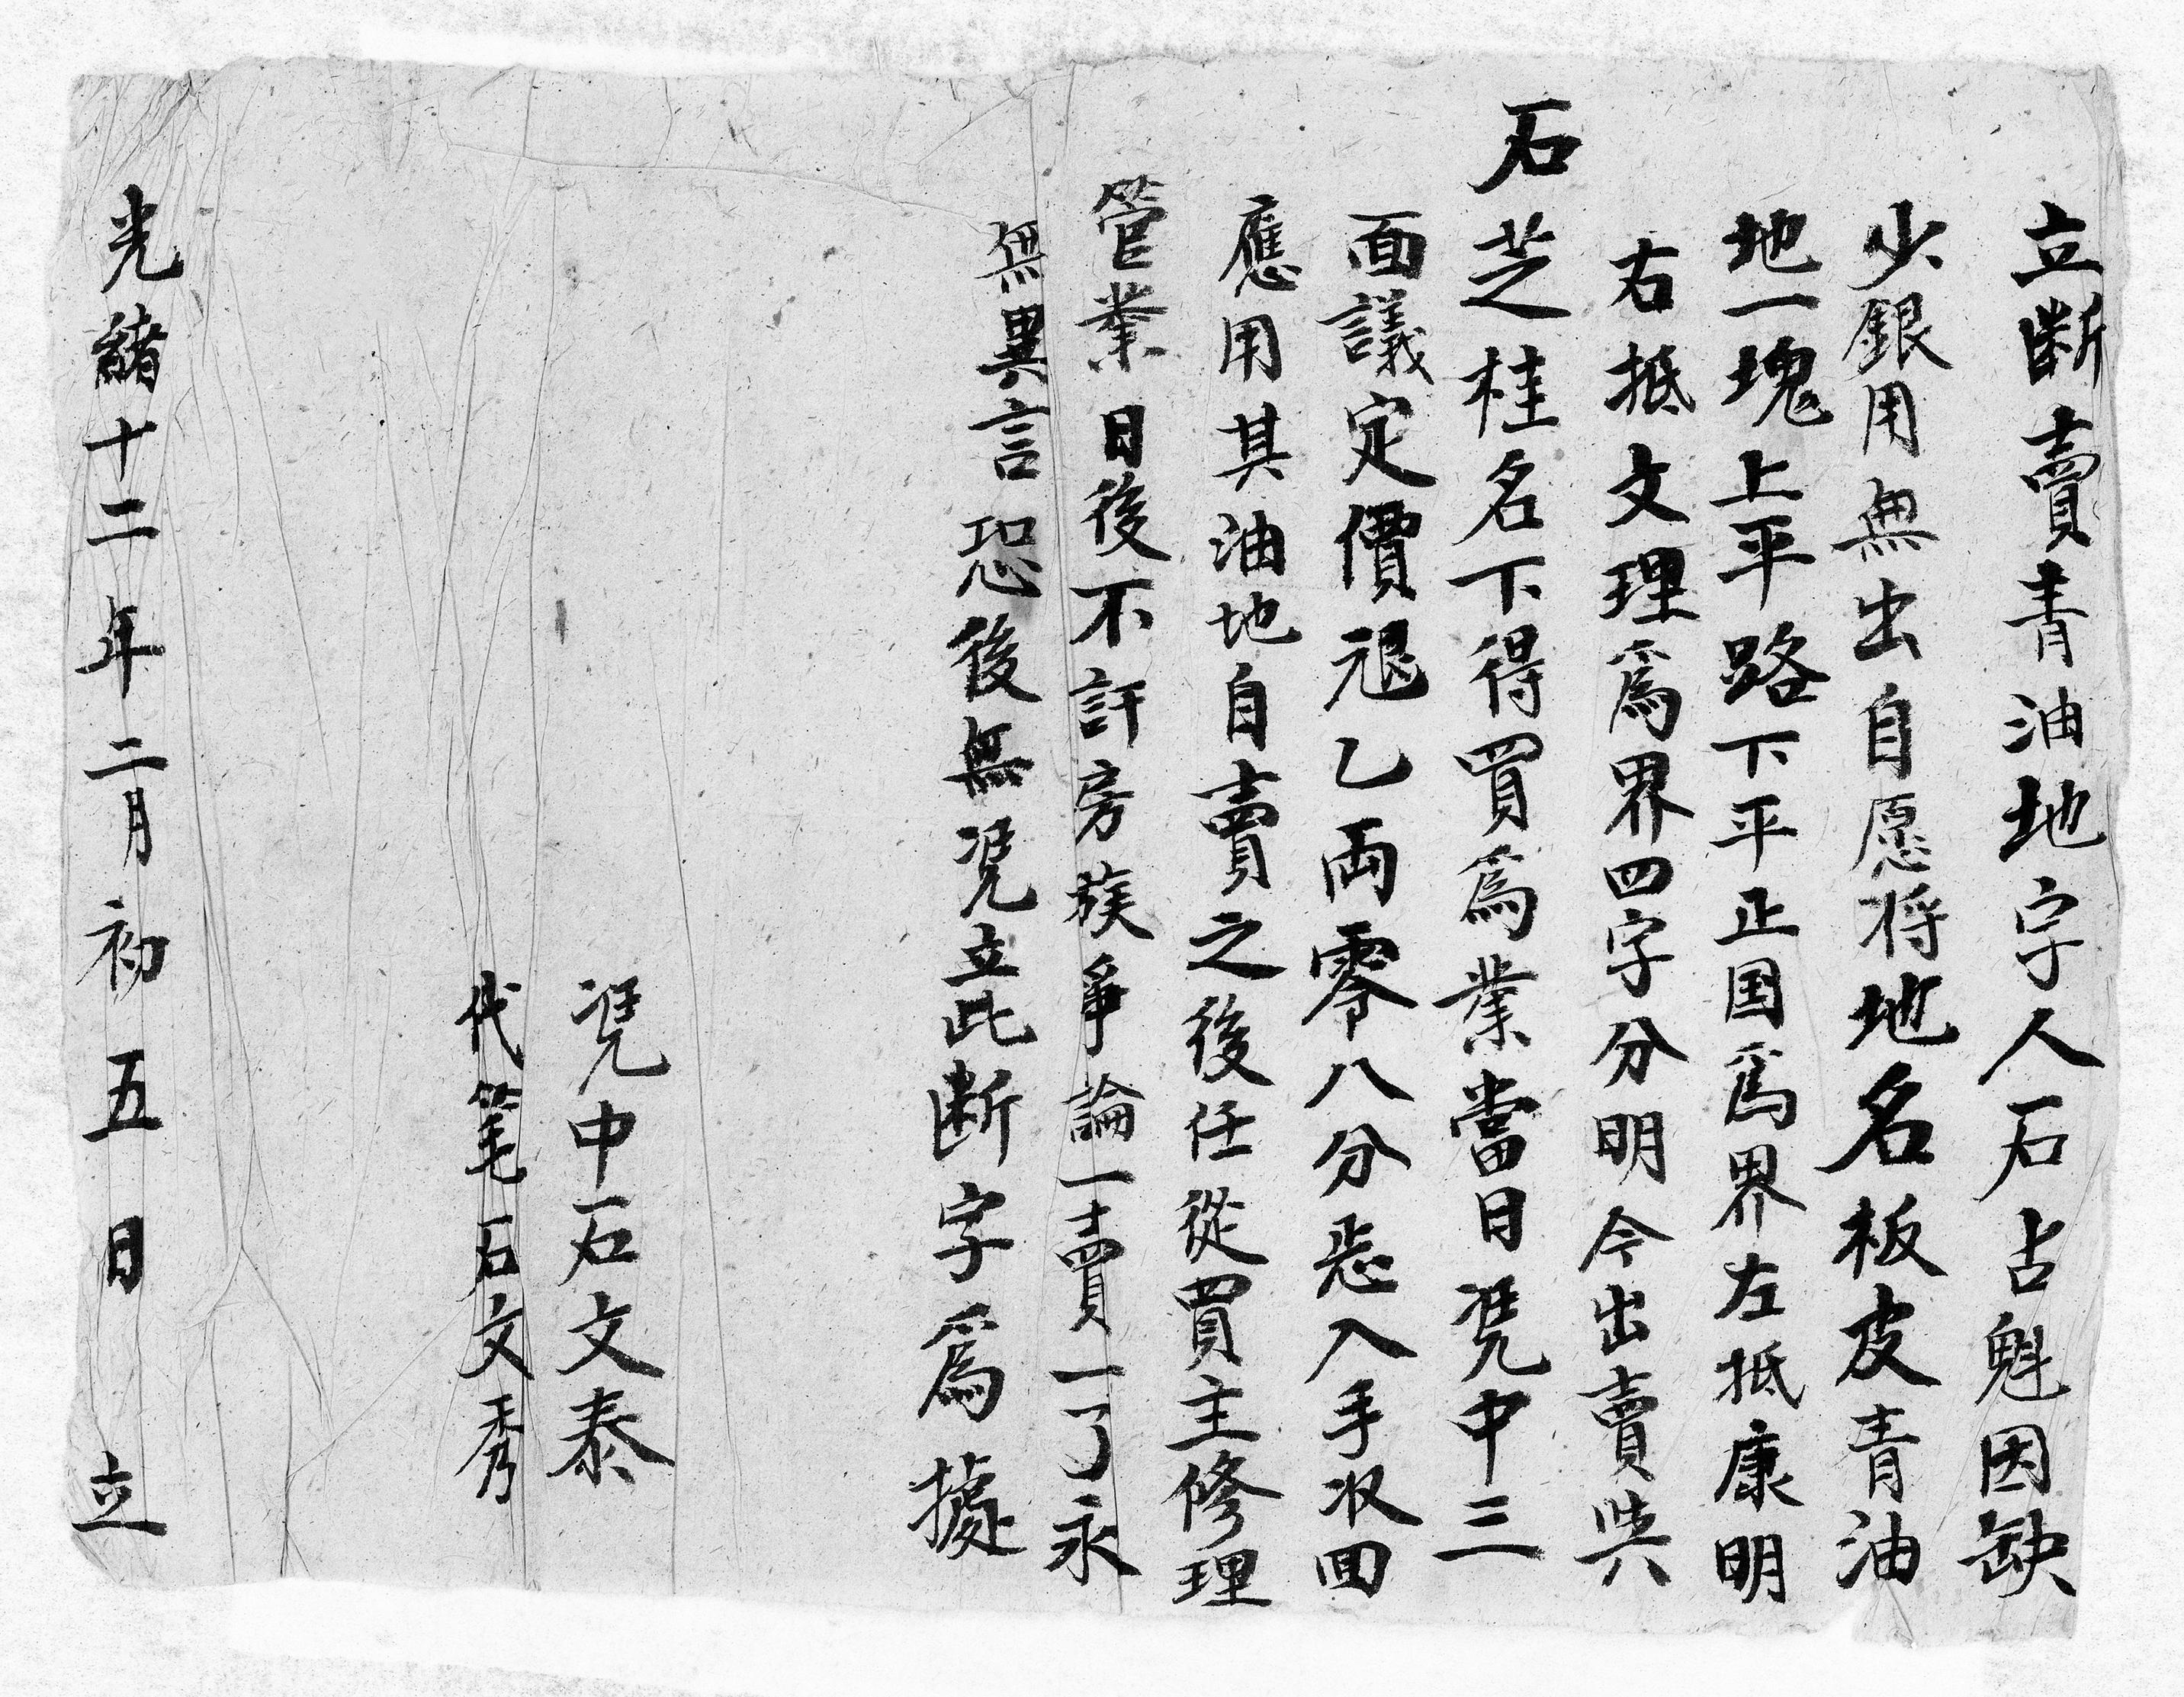 立断賣青油地字人石占魁因缺
少銀用無出自愿将地名板皮青油
地一塊上平路下平正国為界左抵康明
右抵文理為界四字分明今出賣與
石芝桂名下得買為業當日凴中三
面議定價乙両零八分悉入手収回
應用其油地自賣之後任從買主修理
管業日後不許房族爭論一賣一了永
無異言恐後無凴立此断字為據
凴中石文泰
代笔石文秀
光緒十二年二月初五日立